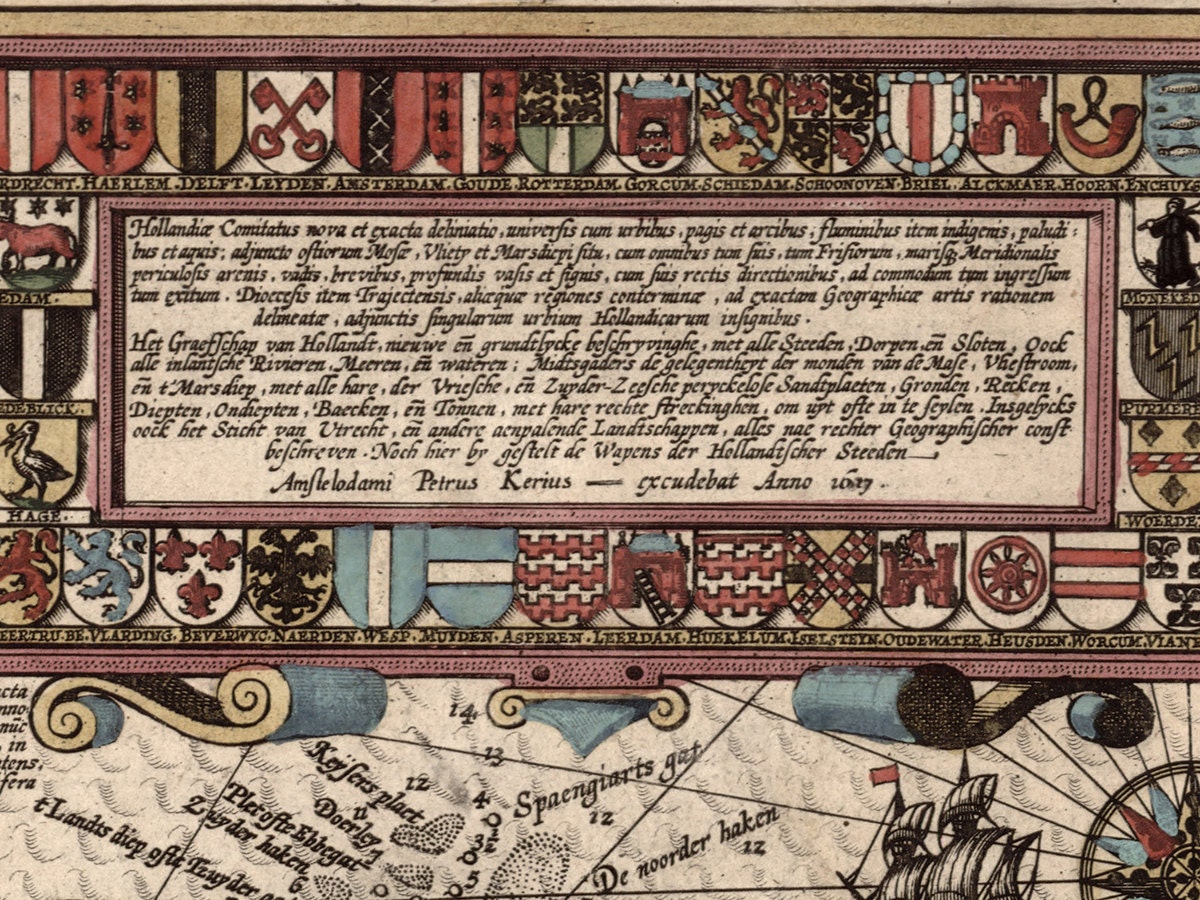 HAERLEM. DELFT. LEYDEN. AMSTERDAM. GOUDE. ROTTERDAM. GORCUM. SCHIEDAM. SCHOONOVEN. BRIEL. ALCKMAER. HOORN. ENCHUY
Hollandiæ Comitatus nova et exacta deliniatio, universis cum urbibus, pagis et arcibus, fluminibus item indigenis, paludi:
bus et aquis; adjuncto ostiorum Mosæ, Vliety et Marsdiepi situ, cum omnibus tum suis, tum Frisiorum, marisq̃ Meridionalis
periculosis arenis, vadis, brevibus, profundis vasis et signis, cum suis rectis directionibus, ad commodum tum ingressum
tum exitum. Dioecesis item Trajectensis, aliæquæ regiones conterminæ, ad exactam Geographicæ artis rationem
delineatæ, adjunctis singularum urbium Hollandicarum insignibus.
Het Graefschap van Hollandt, nieuwe eñ grundtlycke beschryvinghe, met alle Steeden, Dorpen, eñ Sloten, Oock
alle inlantsche Rivieren, Meeren, eñ wateren; Midtsgaders de gelegentheyt der monden van de Mase, Vliestroom,
eñ t'Marsdiep, met alle hare, der Vriesche, eñ Zuyder-Zeesche peryckelose Sandtplaeten, Gronden, Recken,
Diepten, Ondiepten, Baecken, eñ Tonnen, met hare rechte streckinghen, om uyt ofte in te seylen. Insgelycks
oock het Sticht van Utrecht, eñ andere aenpalende Landtschappen, alles nae rechter Geographischer const
beschreven. Noch hier by gestelt de Wapens der Hollandtscher Steeden
Amstelodami Petrus Kerius — excudebat Anno 1617.
EDAM.
MONEKED
EDEBLICK.
PURMER
HAGE.
WOERDE
EERTRU·BE. VLARDING. BEVERWYC. NAERDEN. WESP. MUYDEN. ASPEREN. LEERDAM. HUEKELUM. ISELSTEYN. OUDEWATER. HEUSDEN. WORCUM. VIANE
in
14
13
Keysens plaet
12
Spaengiarts gat
12
Plet ofte Ebbegat
Doerloy
Zuyder haken
De noorder haken
12
t'Landts diep ofte Zuyder
6